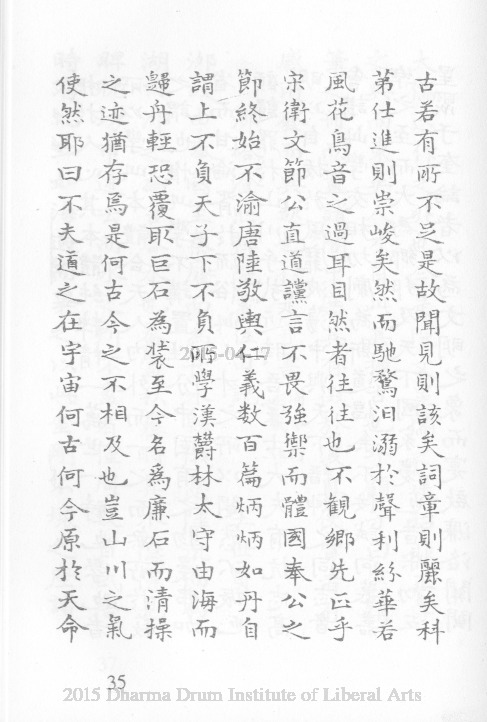 古若有所不足是故聞見則該矣詞章則麗矣科
第仕進則崇峻矣然而馳騖汨溺於聲利紛華若
風花鳥音之過耳目然者往往也不觀鄉先正乎
宋衛文節公直道讜言不畏強禦而體國奉公之
節終始不渝唐陸敬輿仁義数百篇炳炳如丹自
謂上不負天子下不負所學漢欝林太守由海而
歸舟輕恐覆取巨石為裝至今名為廉石而清操
之迹猶存焉是何古今之不相及也豈山川之氣
使然耶曰不夫道之在宇宙何古何今原於天命
2015-04-17
35
2015 Dharma Drum Institute of Liberal Arts